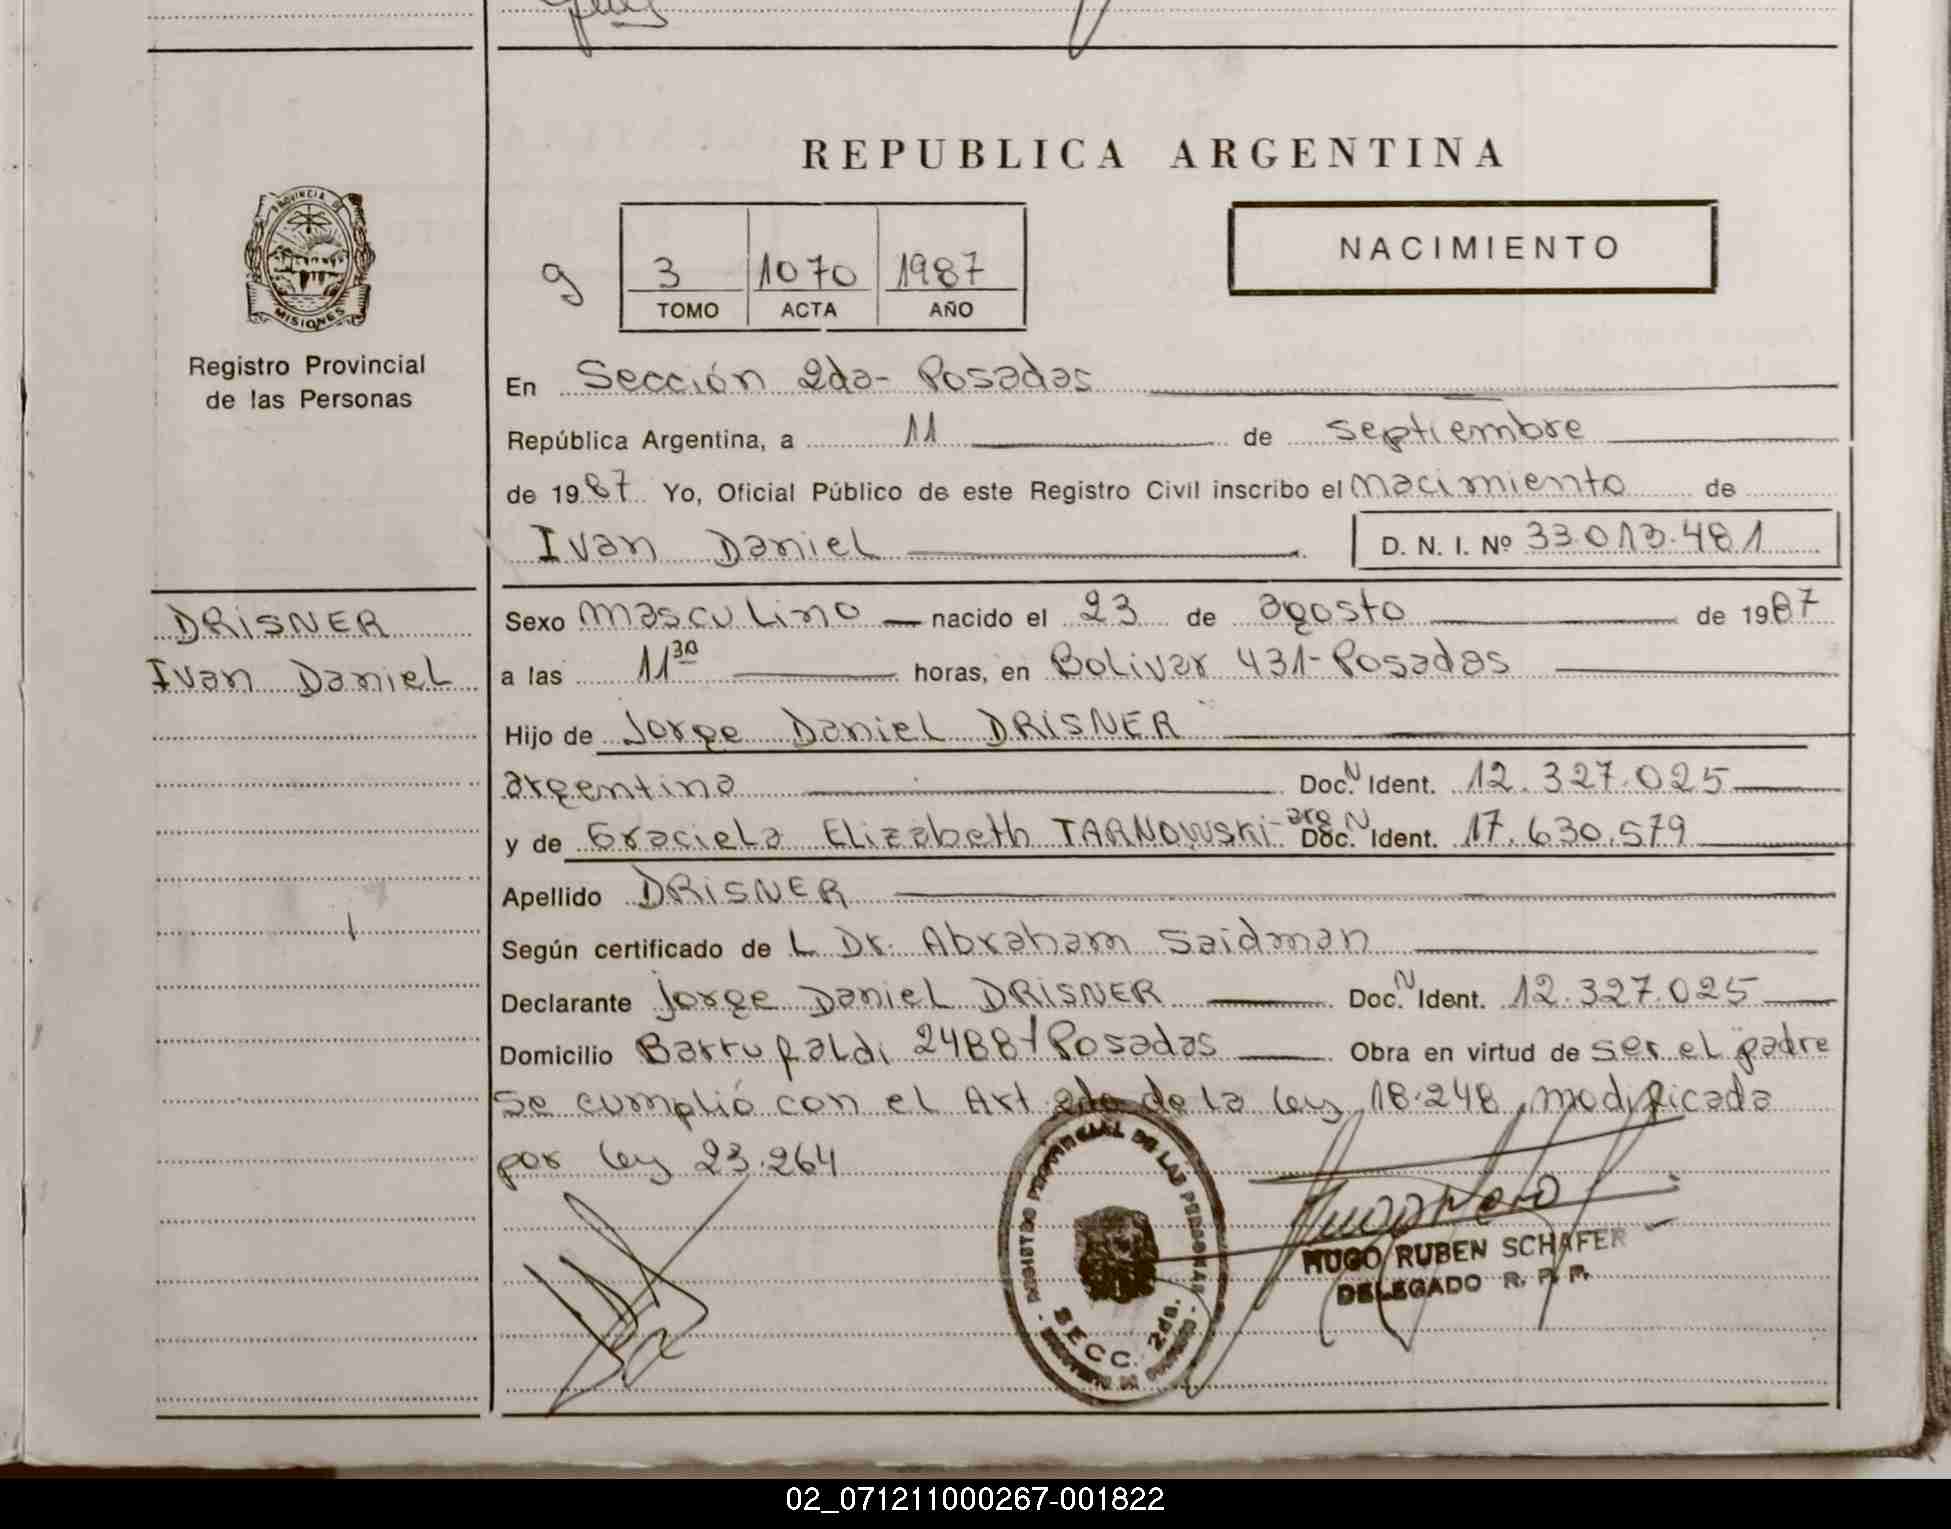 REPUBLICA ARGENTINA
PROVINCIA DE
MISIONES
Registro Provincial
de las Personas
9
3 1070 1987
TOMO ACTA AÑO
NACIMIENTO
En Sección 2da- Posadas
República Argentina, a 11 de septiembre
de 1987 Yo, Oficial Público de este Registro Civil inscribo el nacimiento de
Ivan Daniel D. N. I. Nº 33.013.481
DRISNER
Ivan Daniel
Sexo masculino nacido el 23 de agosto de 1987
a las 11 30 horas, en Bolivar 431-Posadas
Hijo de Jorge Daniel DRISNER
argentino Doc. N Ident. 12.327.025
y de Graciela Elizabeth TARNOWSKI-arg Doc. N Ident. 17.630.579
Apellido DRISNER
Según certificado de L Dr. Abraham Saidman
Declarante Jorge Daniel DRISNER Doc. N Ident. 12.327.025
Domicilio Barrufaldi 2488 Posadas Obra en virtud de ser el padre
Se cumplió con el Art 2do de la ley 18.248, modificada
por ley 23.264
REGISTRO PROVINCIAL DE LAS PERSONAS
SECC. 2da.
HUGO RUBEN SCHAFER
DELEGADO R. P. P.
02_071211000267-001822